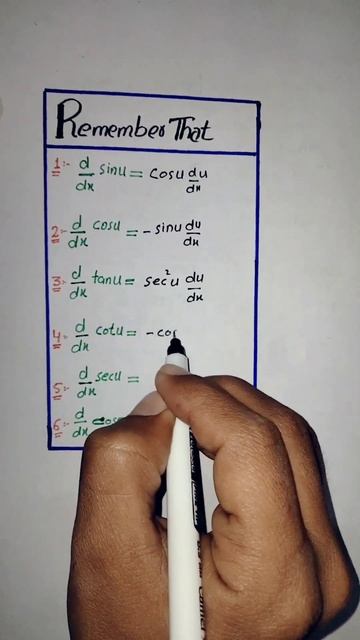 Remember That
1:- d/dx sinu = cosu du/dx
2:- d/dx cosu = -sinu du/dx
3:- d/dx tanu = sec²u du/dx
4:- d/dx cotu = -cos
5:- d/dx secu =
6:- d/dx cos